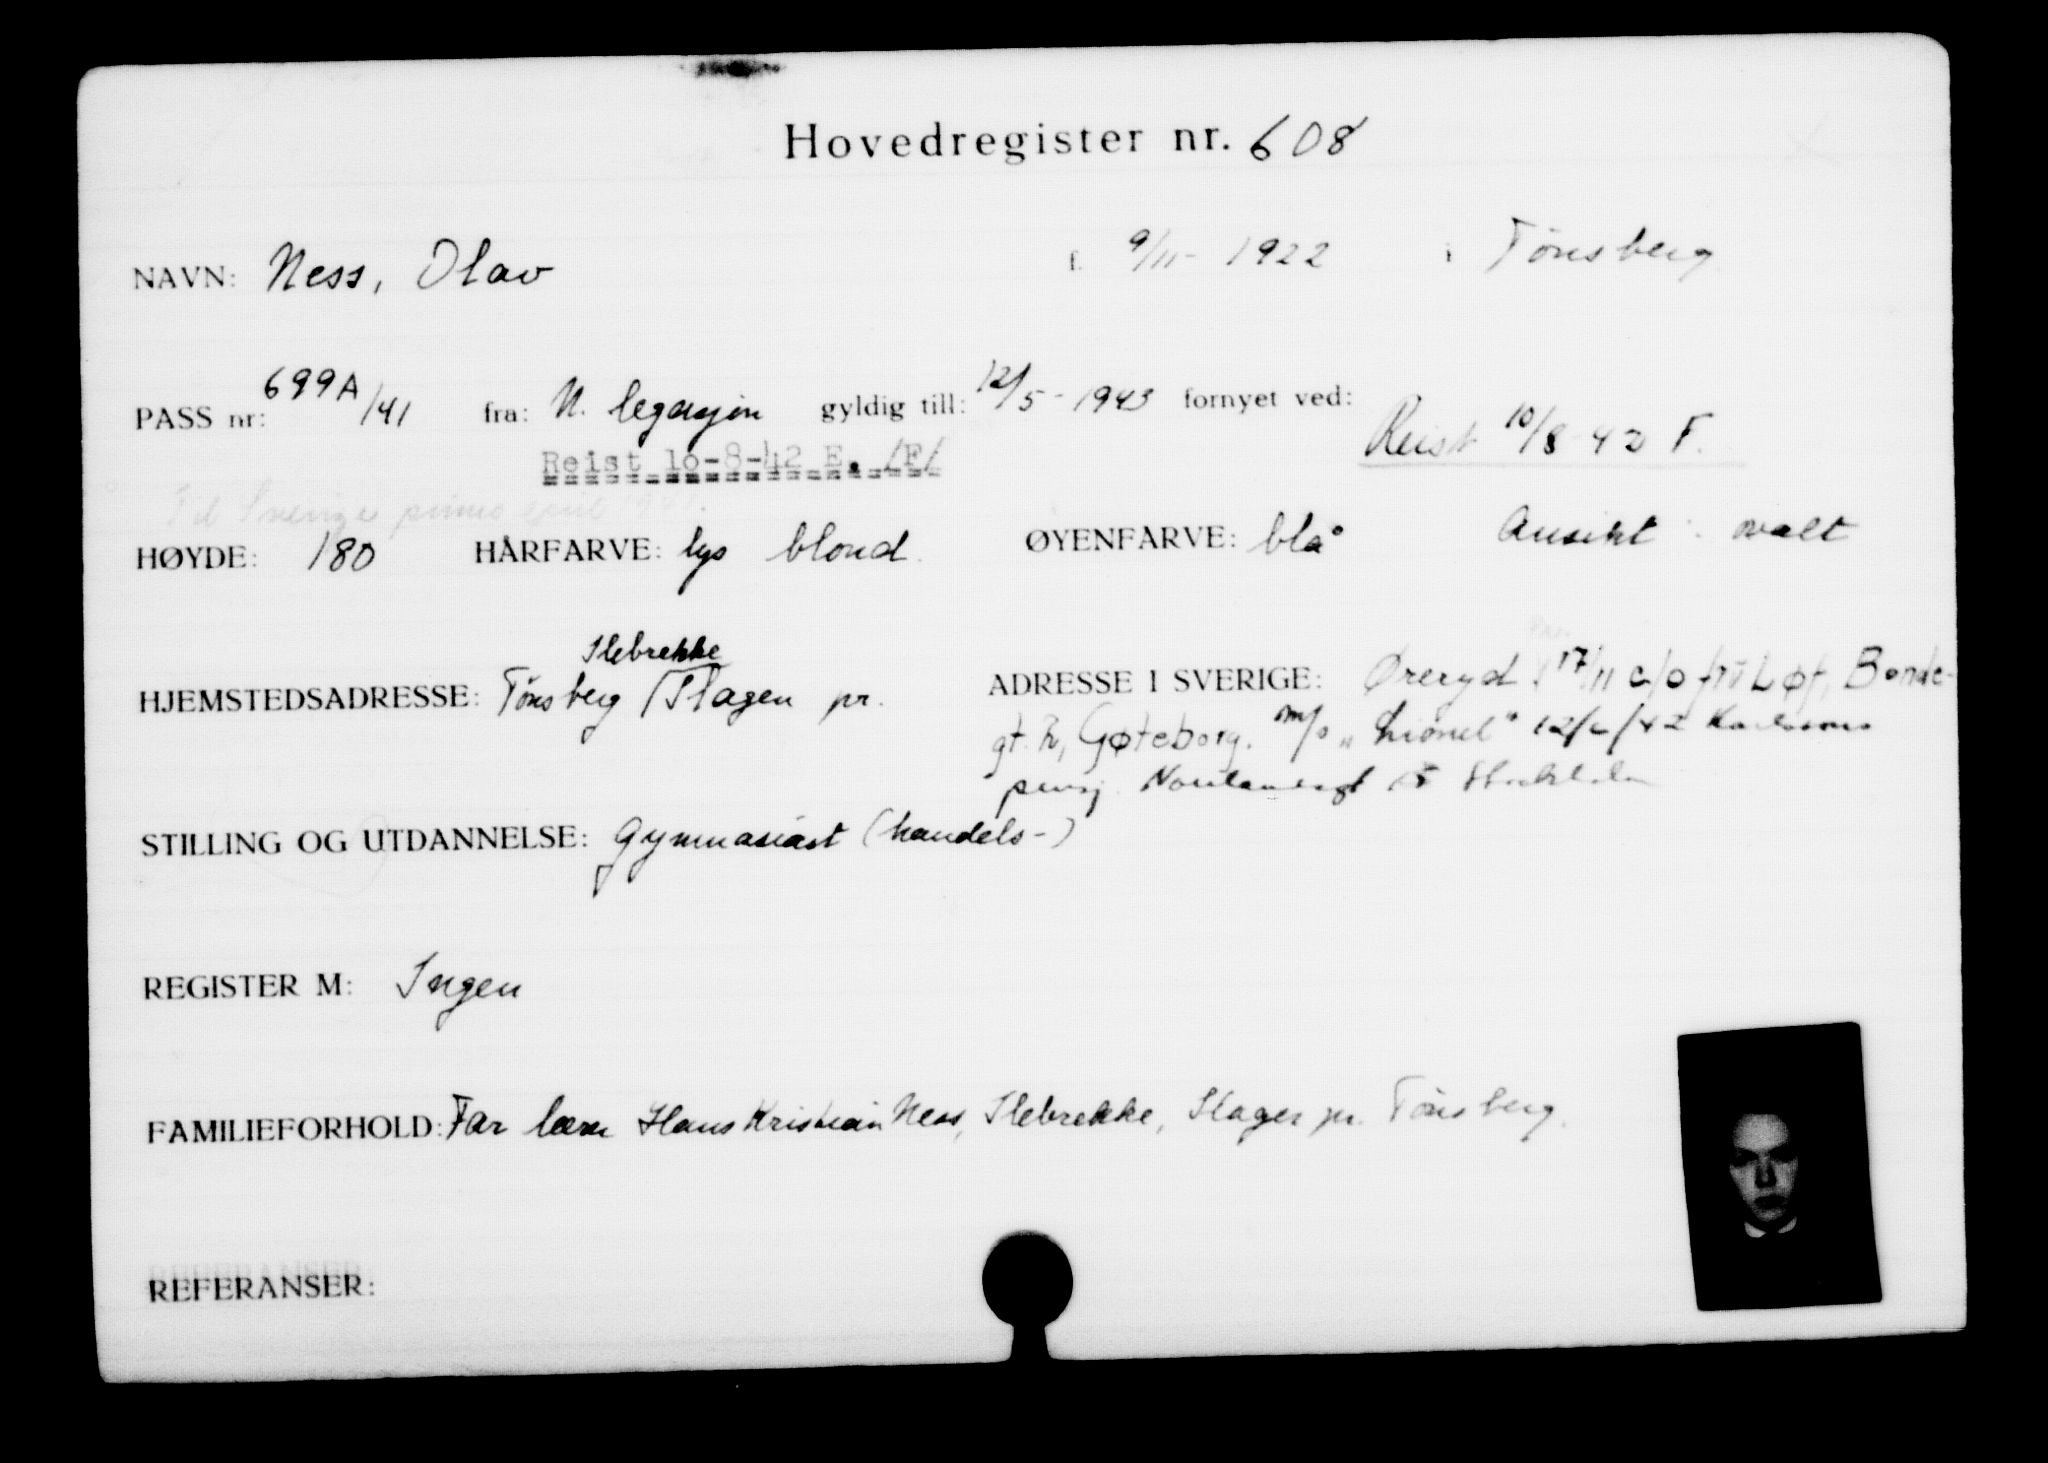 Hovedregister nr. 608
NAVN: Ness, Olav f. 9/11- 1922 i Tönsberg
PASS nr: 699A/41 fra: N. legasjon gyldig till: 12/5- 1943 fornyet ved:
Reist 10/8 42 F.
Reist 10-8-42 E. /F/
Til Sverige primo april 1941.
HØYDE: 180 HÅRFARVE: lys blond. ØYENFARVE: blå Ansikt: ovalt
Ilebrekke
HJEMSTEDSADRESSE: Tönsberg / Slagen pr. ADRESSE I SVERIGE: Øreryd 17/11 c/o fru Løf, Bonde-
gt. Göteborg. m/s "Lionel" 12/6/42 Karlssons
pensj. Stockholm
STILLING OG UTDANNELSE: Gymnasiast (handels-)
REGISTER M: Ingen
FAMILIEFORHOLD: Far lærer Hans Kristian Ness, Ilebrekke, Slagen pr. Tönsberg.
REFERANSER: